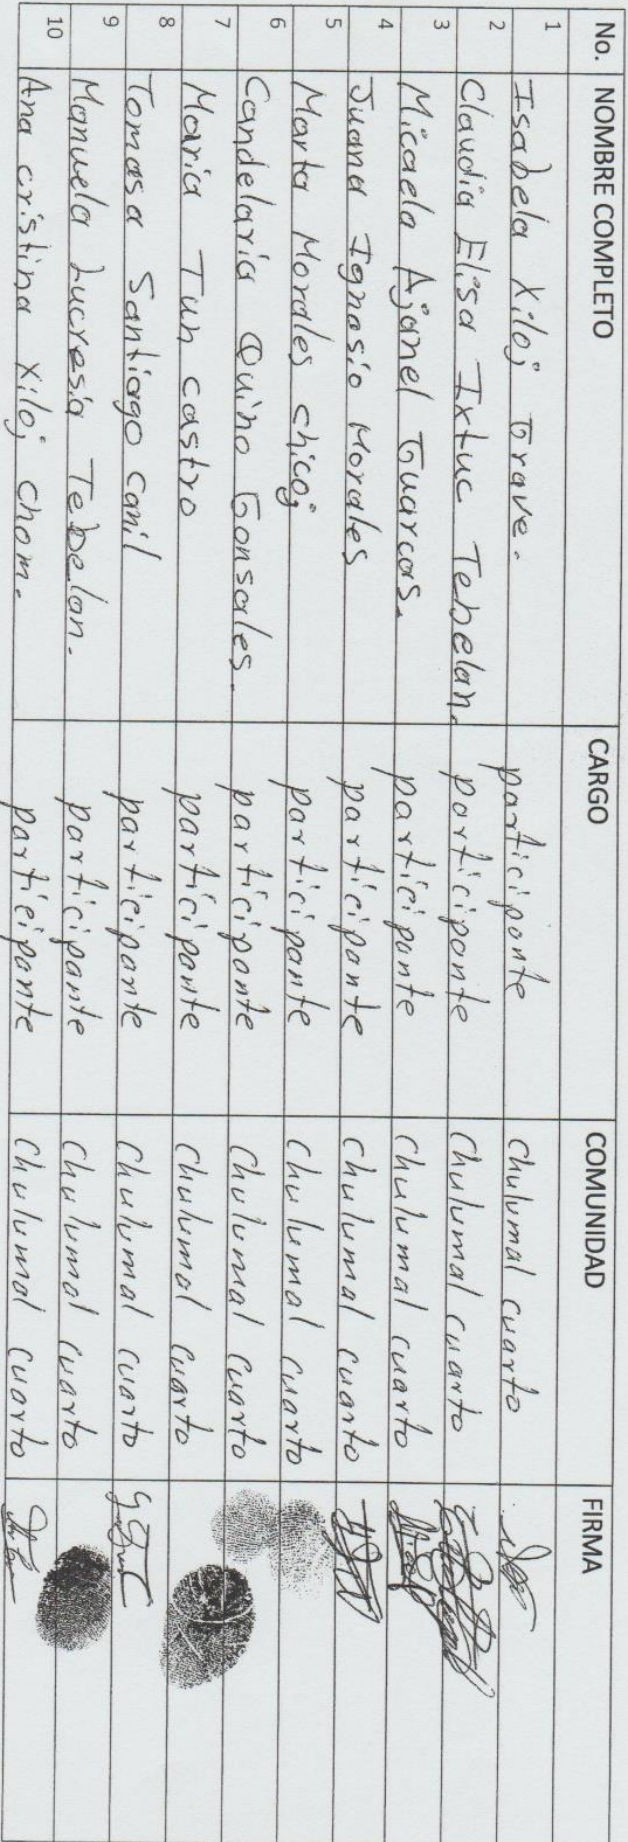 No. NOMBRE COMPLETO CARGO COMUNIDAD FIRMA
1 Isabela Xiloj Grave. participante chulumal cuarto
2 Claudia Elisa Ixtuc Tebelan. participante chulumal cuarto
3 Micaela Ajanel Guarcas. participante chulumal cuarto
4 Juana Ignasio Morales participante chulumal cuarto
5 Marta Morales chicoj participante chulumal cuarto
6 Candelaria Quino Gonsales. participante chulumal cuarto
7 Maria Tun castro participante chulumal cuarto
8 Tomasa Santiago canil participante chulumal cuarto
9 Manuela Lucresia Tebelan. participante chulumal cuarto
10 Ana cristina Xiloj chom. participante chulumal cuarto